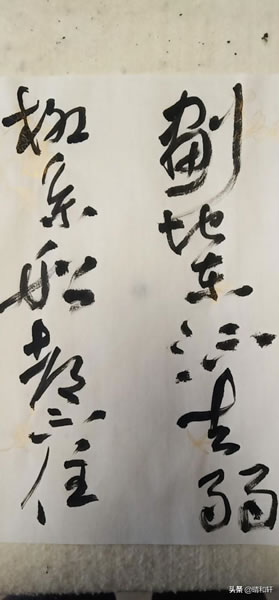 劃地東流去弱
柳系船都不住
头条 @晴和轩